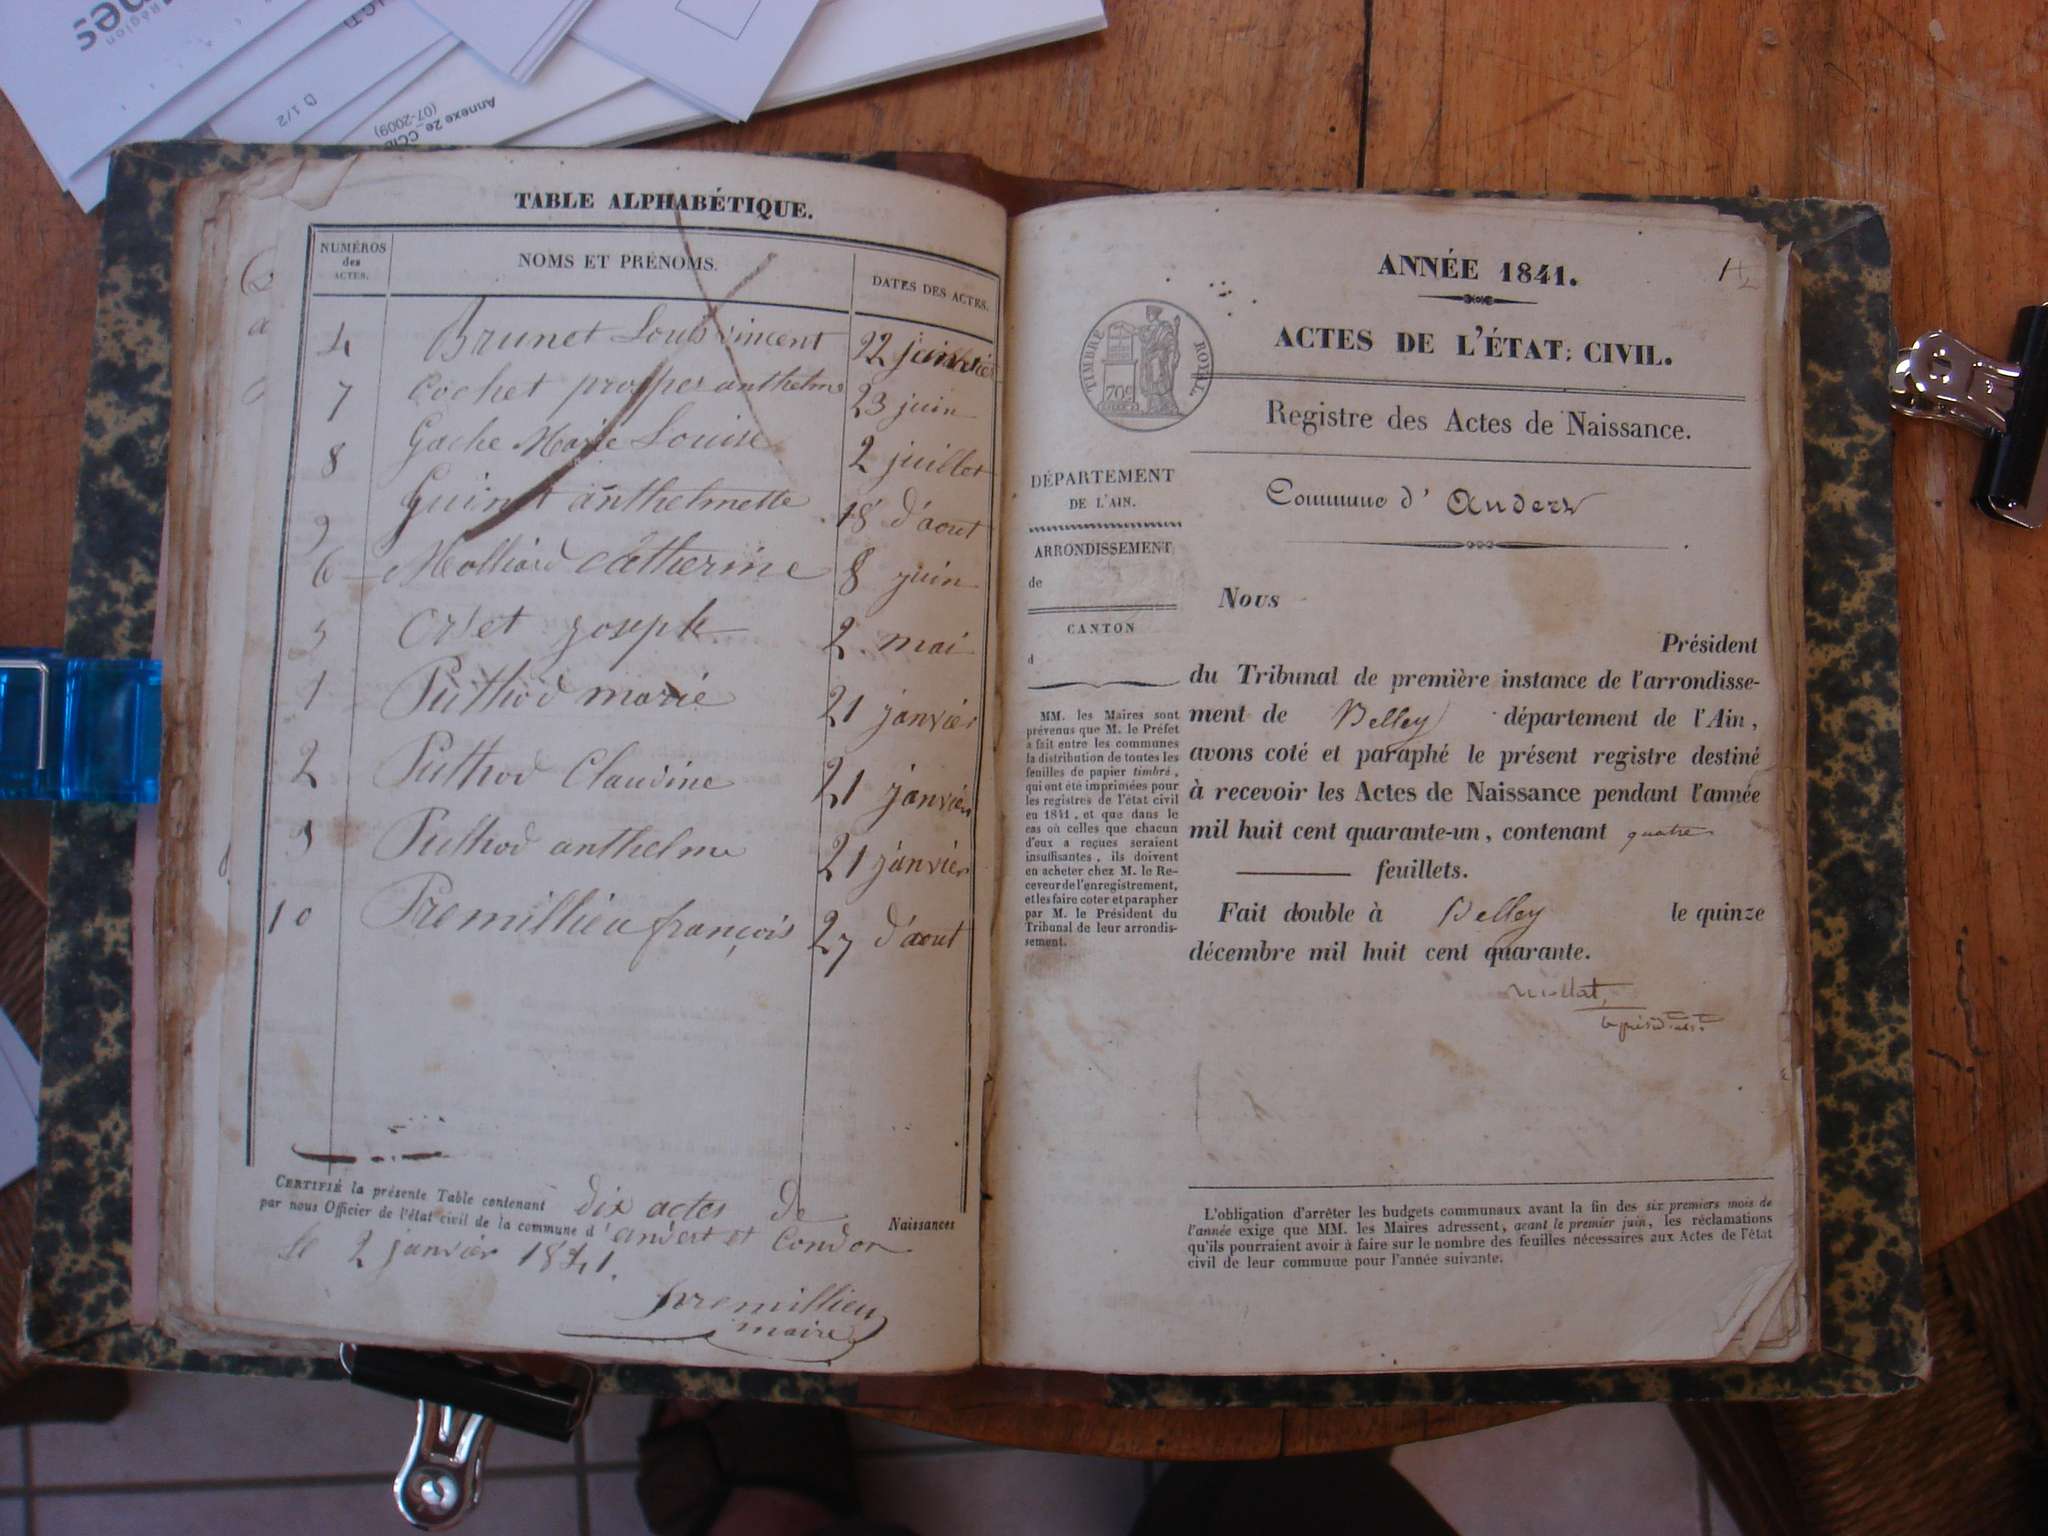 Région
D 1/2
Annexe 2e_CCI
(07-2009)
TABLE ALPHABÉTIQUE.
NUMÉROS
des
ACTES.
NOMS ET PRÉNOMS.
DATES DES ACTES.
4 Brunet Louis vincent 22
7 Cochet prosper anthelme 23 juin
8 Gache Marie Louise 2 juillet
9 Guinet anthelmette 18 d'aout
6 Molliard catherine 8 juin
5 Orset joseph 2 mai
1 Puthod marie 21 janvier
2 Puthod Claudine 21 janvier
3 Puthod anthelme 21 janvier
10 Premillieu françois 27 d'aout
CERTIFIÉ la présente Table contenant dix actes de Naissances
par nous Officier de l'état civil de la commune d'andert et Condon
Le 2 janvier 1841.
premillieu
maire
ANNÉE 1841.
ACTES DE L'ÉTAT; CIVIL.
TIMBRE ROYAL
70c
Registre des Actes de Naissance.
DÉPARTEMENT
DE L'AIN.
ARRONDISSEMENT
de
CANTON
d
MM. les Maires sont
prévenus que M. le Préfet
a fait entre les communes
la distribution de toutes les
feuilles de papier timbré,
qui ont été imprimées pour
les registres de l'état civil
en 1841, et que dans le
cas où celles que chacun
d'eux a reçues seraient
insuffisantes, ils doivent
en acheter chez M. le Re-
ceveur de l'enregistrement,
et les faire coter et parapher
par M. le Président du
Tribunal de leur arrondis-
sement.
Commune d'Andert
Nous
Président
du Tribunal de première instance de l'arrondisse-
ment de Belley département de l'Ain,
avons coté et paraphé le présent registre destiné
à recevoir les Actes de Naissance pendant l'année
mil huit cent quarante-un, contenant quatre
feuillets.
Fait double à Belley le quinze
décembre mil huit cent quarante.
L'obligation d'arrêter les budgets communaux avant la fin des six premiers mois de
l'année exige que MM. les Maires adressent, avant le premier juin, les réclamations
qu'ils pourraient avoir à faire sur le nombre des feuilles nécessaires aux Actes de l'état
civil de leur commune pour l'année suivante.